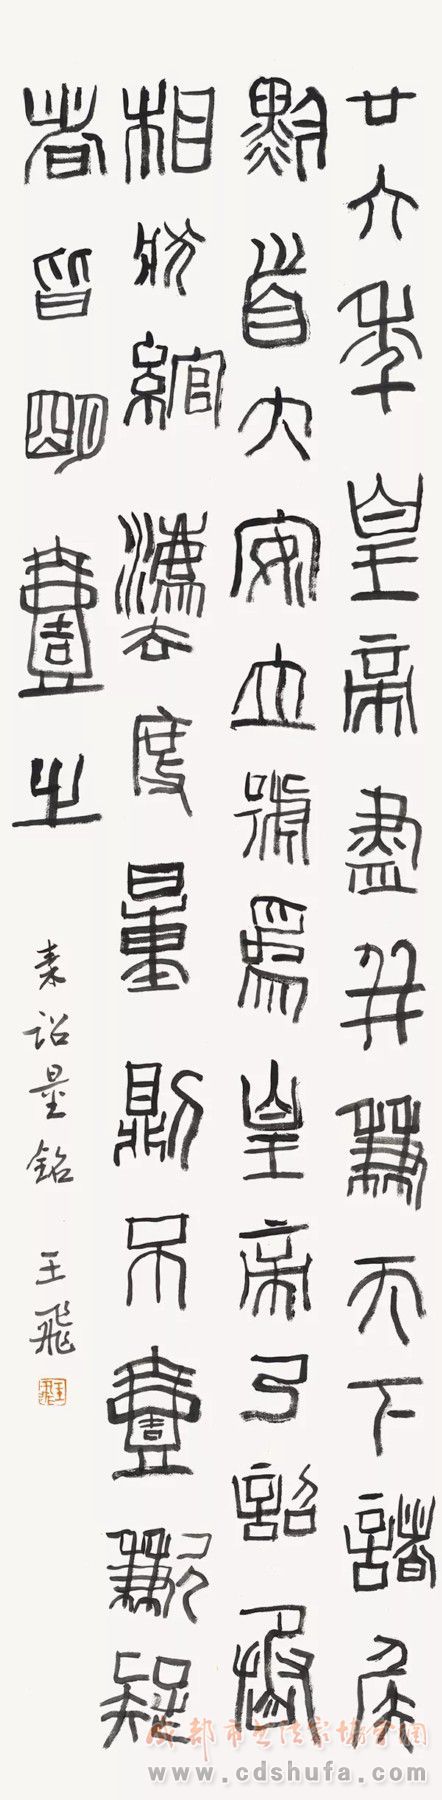 廿六年皇帝盡并兼天下諸侯
黔首大安立號爲皇帝乃詔丞
相狀綰灋度量則不壹歉疑
者皆明壹之
秦詔量銘 王飛
王飛
成都市书法家协会网
www.cdshufa.com